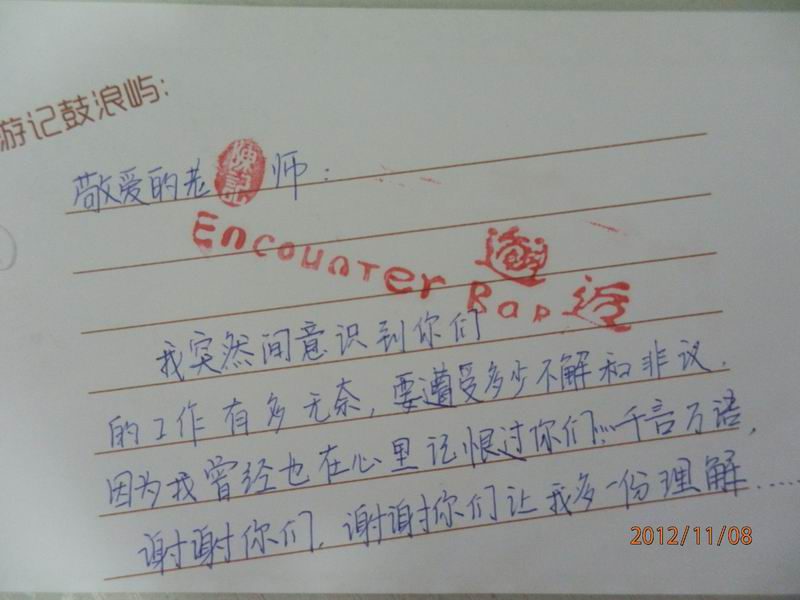 游记鼓浪屿:
敬爱的老师:
陳記
Encounter 邂
Bar 逅
我突然间意识到你们
的工作有多无奈,要遭受多少不解和非议.
因为我曾经也在心里记恨过你们…千言万语,
谢谢你们,谢谢你们让我多一份理解……
2012/11/08